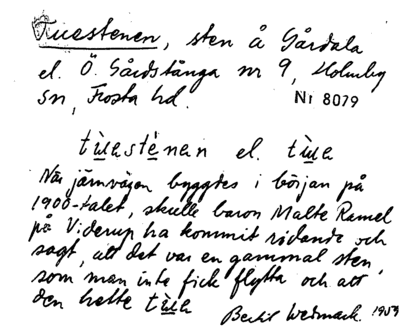 Tuestenen, sten å Gårdala
el. Ö. Gårdstånga nr 9, Holmby
sn, Frosta hd. Nr 8079
tùastènan el. tùa
När järnvägen byggdes i början på
1900-talet, skulle baron Malte Ramel
på Viderup ha kommit ridande och
sagt, att det var en gammal sten
som man inte fick flytta och att
den hette tùa
Bertil Wedmark. 1959